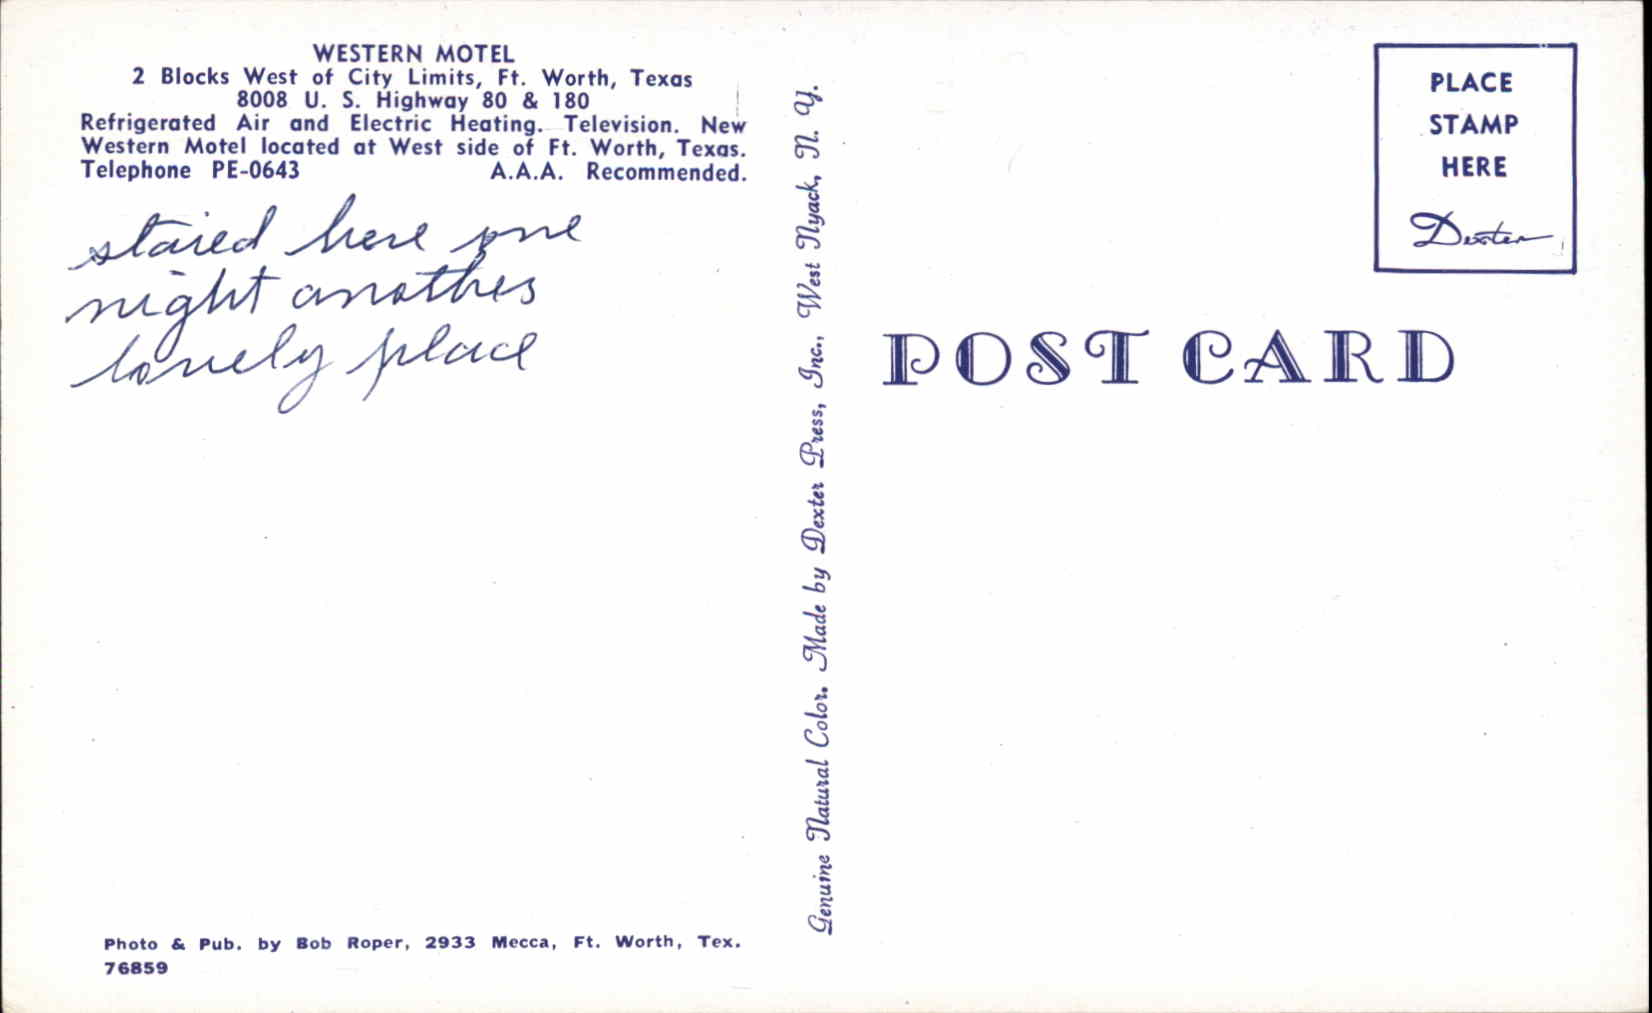 WESTERN MOTEL
2 Blocks West of City Limits, Ft. Worth, Texas
8008 U. S. Highway 80 & 180
Refrigerated Air and Electric Heating. Television. New
Western Motel located at West side of Ft. Worth, Texas.
Telephone PE-0643 A.A.A. Recommended.
staied here one
night another
lonely place
Photo & Pub. by Bob Roper, 2933 Mecca, Ft. Worth, Tex.
76859
Genuine Natural Color. Made by Dexter Press, Inc., West Nyack, N. Y.
PLACE
STAMP
HERE
Dexter
POST CARD